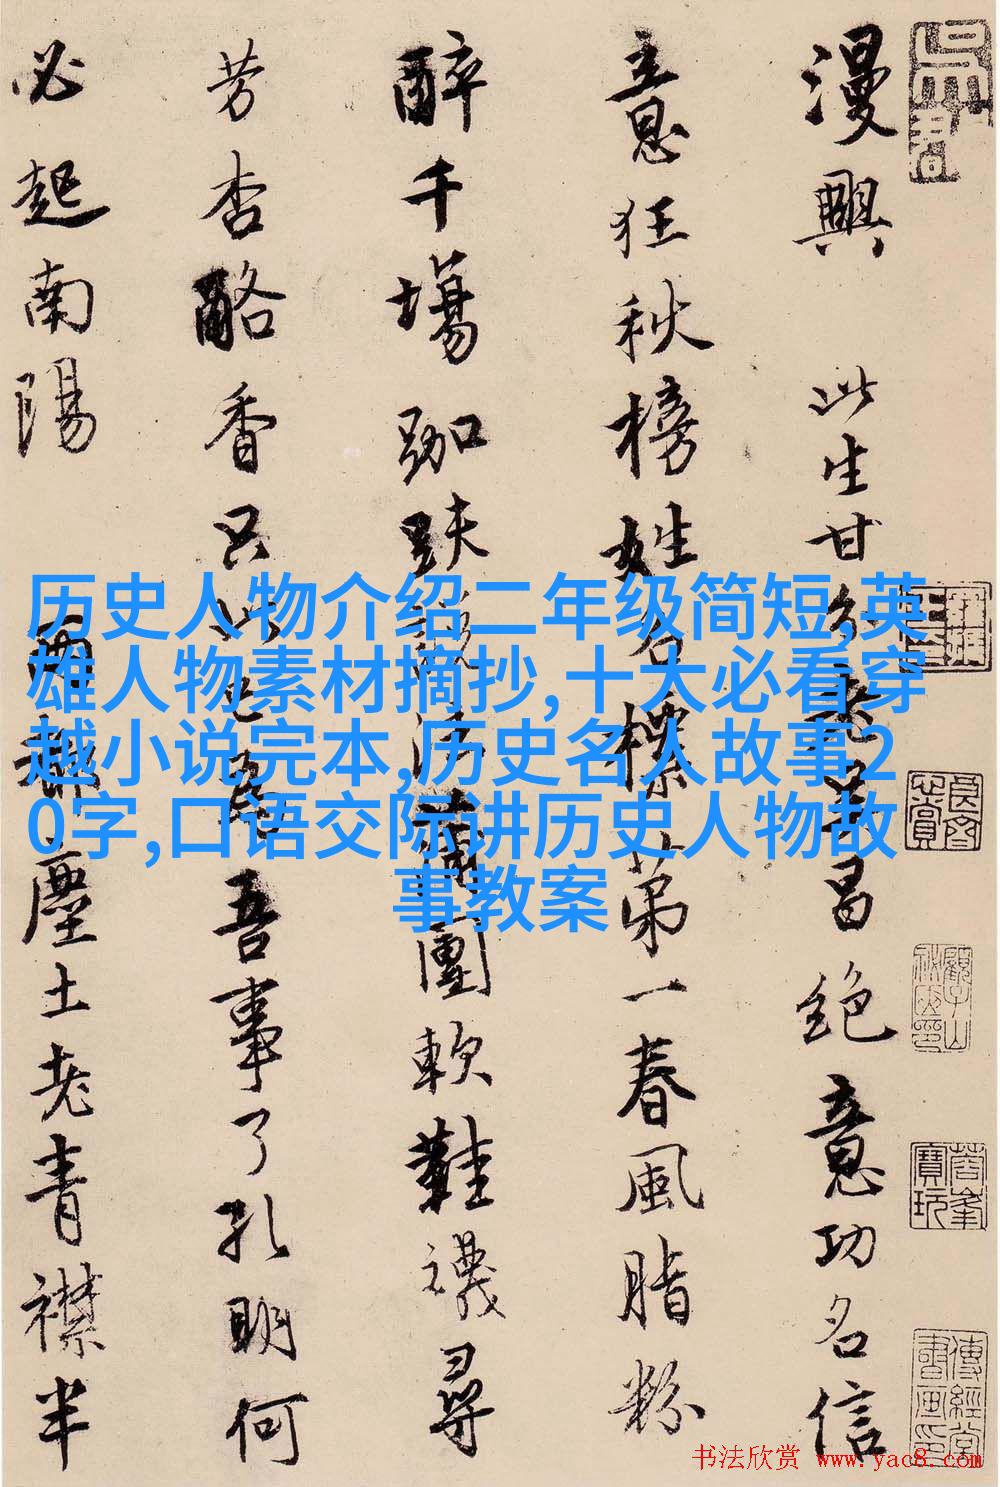 漫興 此生甘昌絕意功名信
意狂秋榜姓名標第一春風脂粉
醉千場跏趺說法蒲團軟鞋襪尋
芳杏酪香只此已為吾事了孔明何
必起南陽 塵土老青襟半
历史人物介绍二年级简短,英
雄人物素材摘抄,十大必看穿
越小说完本,历史名人故事2
0字,口语交际讲历史人物故
事教案
书法欣赏 www.yac8.com